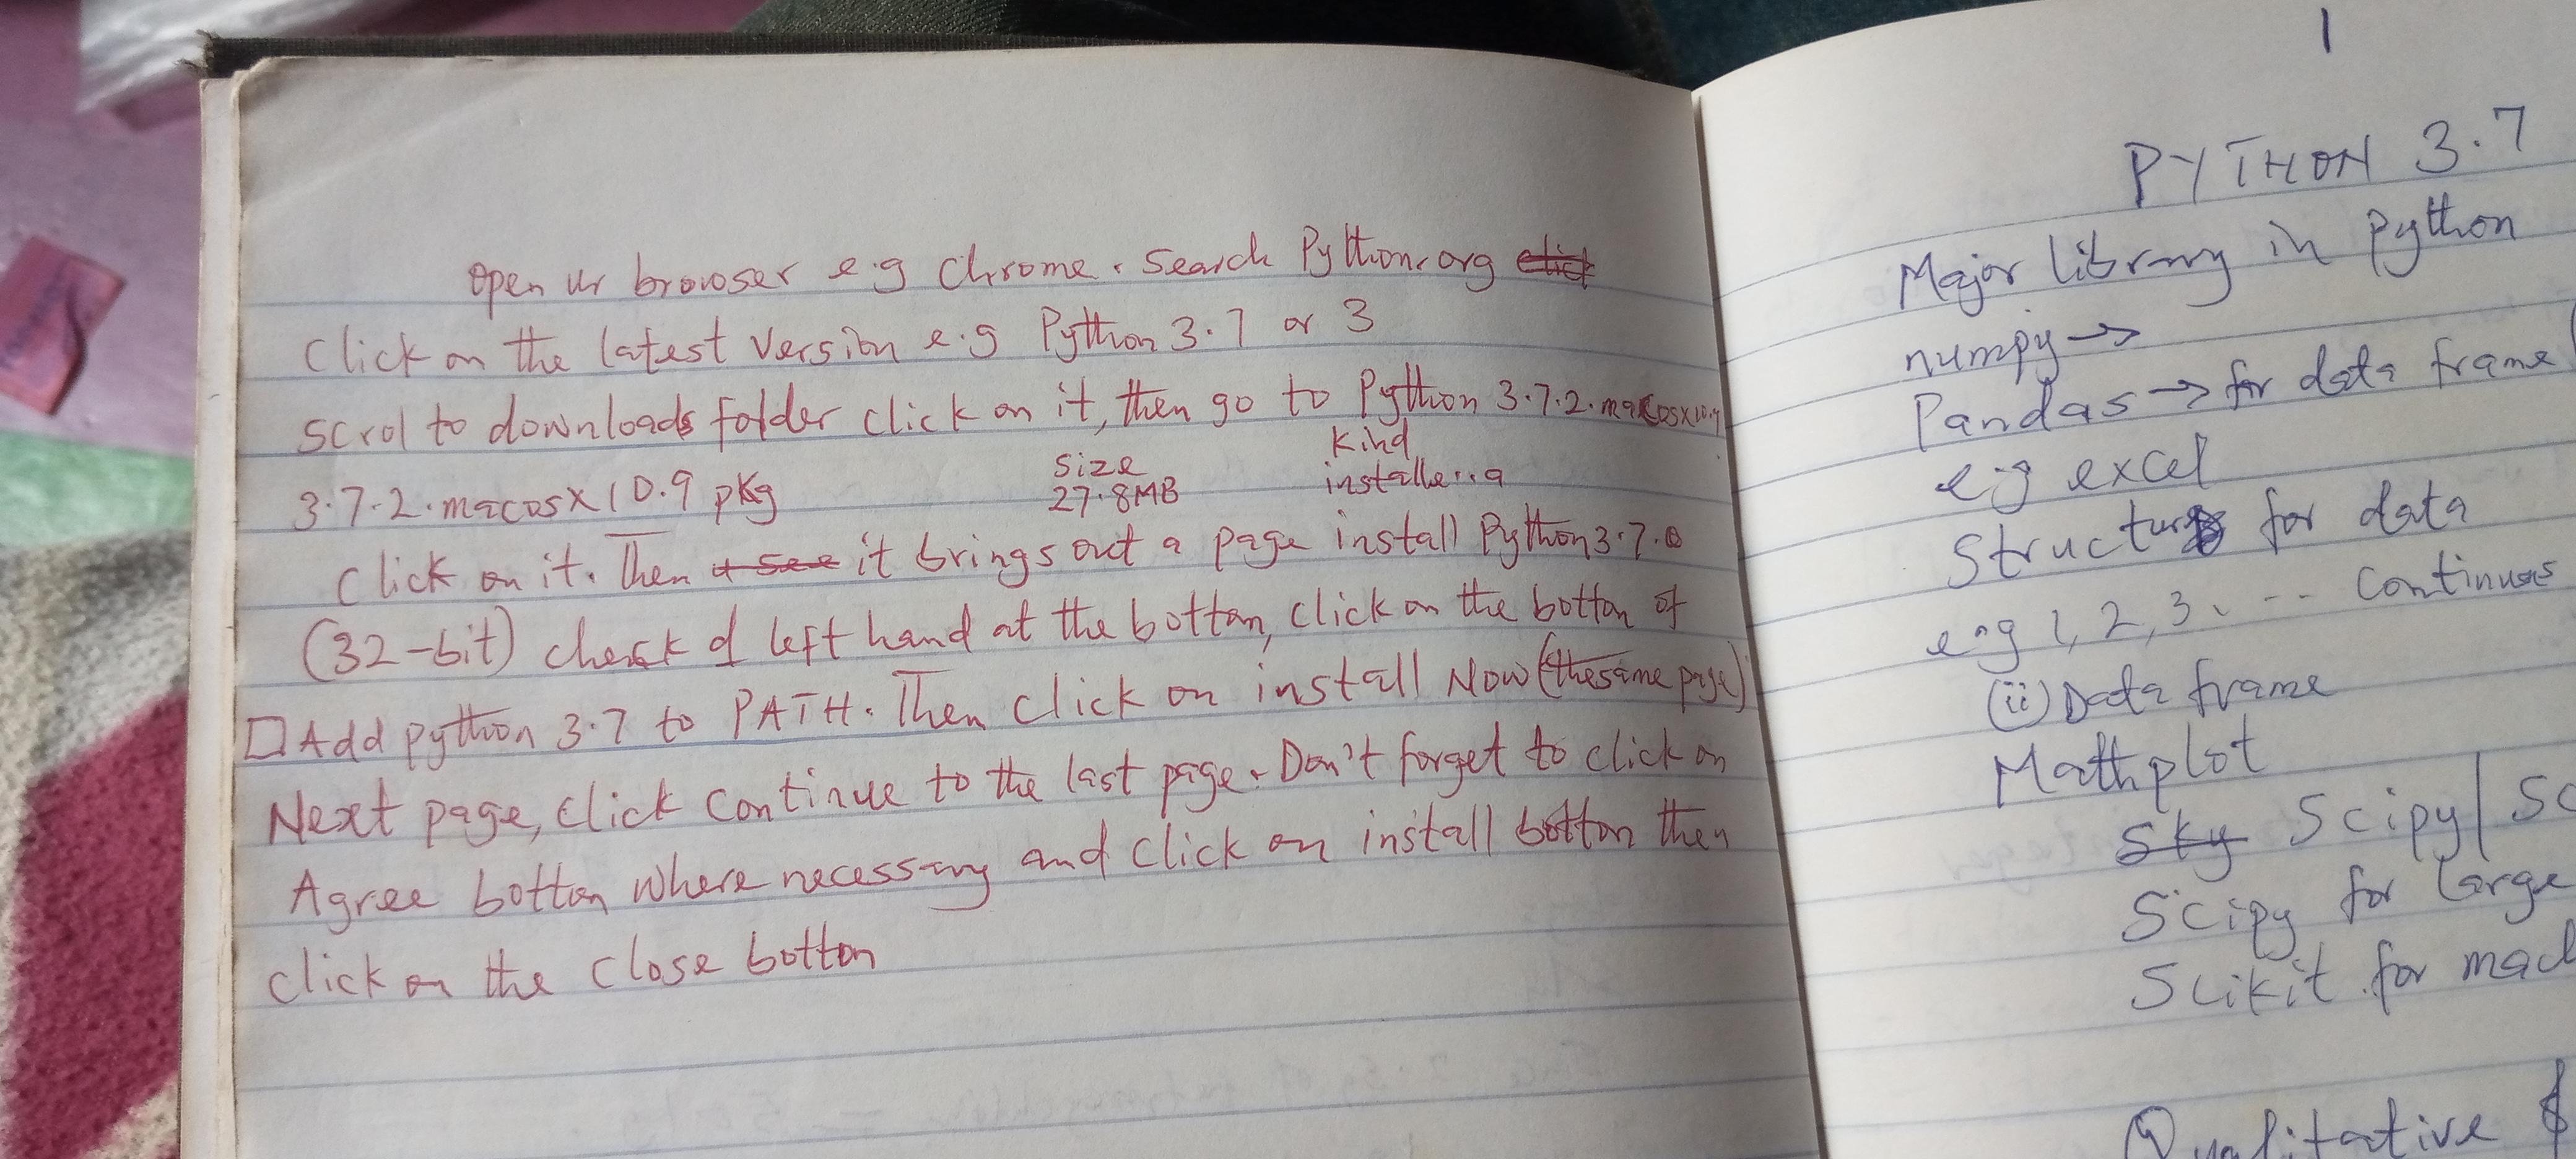 open ur browser e.g Chrome. Search Python.org
Click on the latest version e.g Python 3.7 or 3
Scrol to downloads folder click on it, then go to Python 3.7.2.macosx10.9
Size
Kind
3.7.2.macosx10.9 pkg 27.8MB installe...a
Click on it. Then it brings out a page install Python 3.7.0
(32-bit) check d left hand at the botton, click on the botton of
□ Add python 3.7 to PATH. Then click on install Now (thesame page)
Next page, click continue to the last page. Don't forget to click on
Agree botton where necessary and click on install botton then
click on the close botton
1
PYTHON 3.7
Major library in python
numpy →
Pandas → for data frame
e.g excel
Structure for data
e.g 1, 2, 3, ... continues
(ii) Data frame
Mathplot
Scipy/
Scipy for large
Scikit for
Qualitative